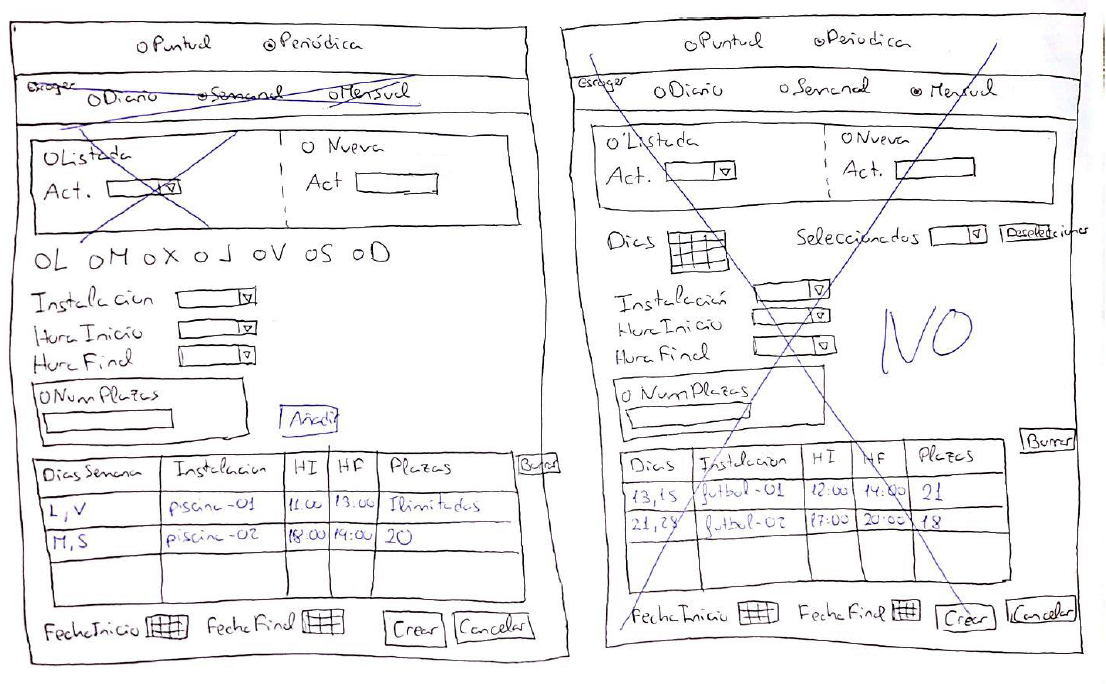 Puntual Periódica
Escoger Diario Semanal Mensual
Listada Nueva
Act. Act
L M X J V S D
Instalacion
Hora Inicio
Hora Final
Num Plazas
Añadir
Dias Semana Instalacion HI HF Plazas Borrar
L, V piscina-01 11:00 13:00 Ilimitadas
M, S piscina-02 18:00 19:00 20
Fecha Inicio Fecha Final Crear Cancelar
Puntual Periodica
Escoger Diario Semanal Mensual
Listada Nueva
Act. Act.
Dias Seleccionados Deseleccionar
Instalación
Hora Inicio
Hora Final
NO
Num Plazas
Borrar
Dias Instalacion HI HF Plazas
13, 15 futbol-01 12:00 14:00 21
21, 28 futbol-02 17:00 20:00 18
Fecha Inicio Fecha Final Crear Cancelar